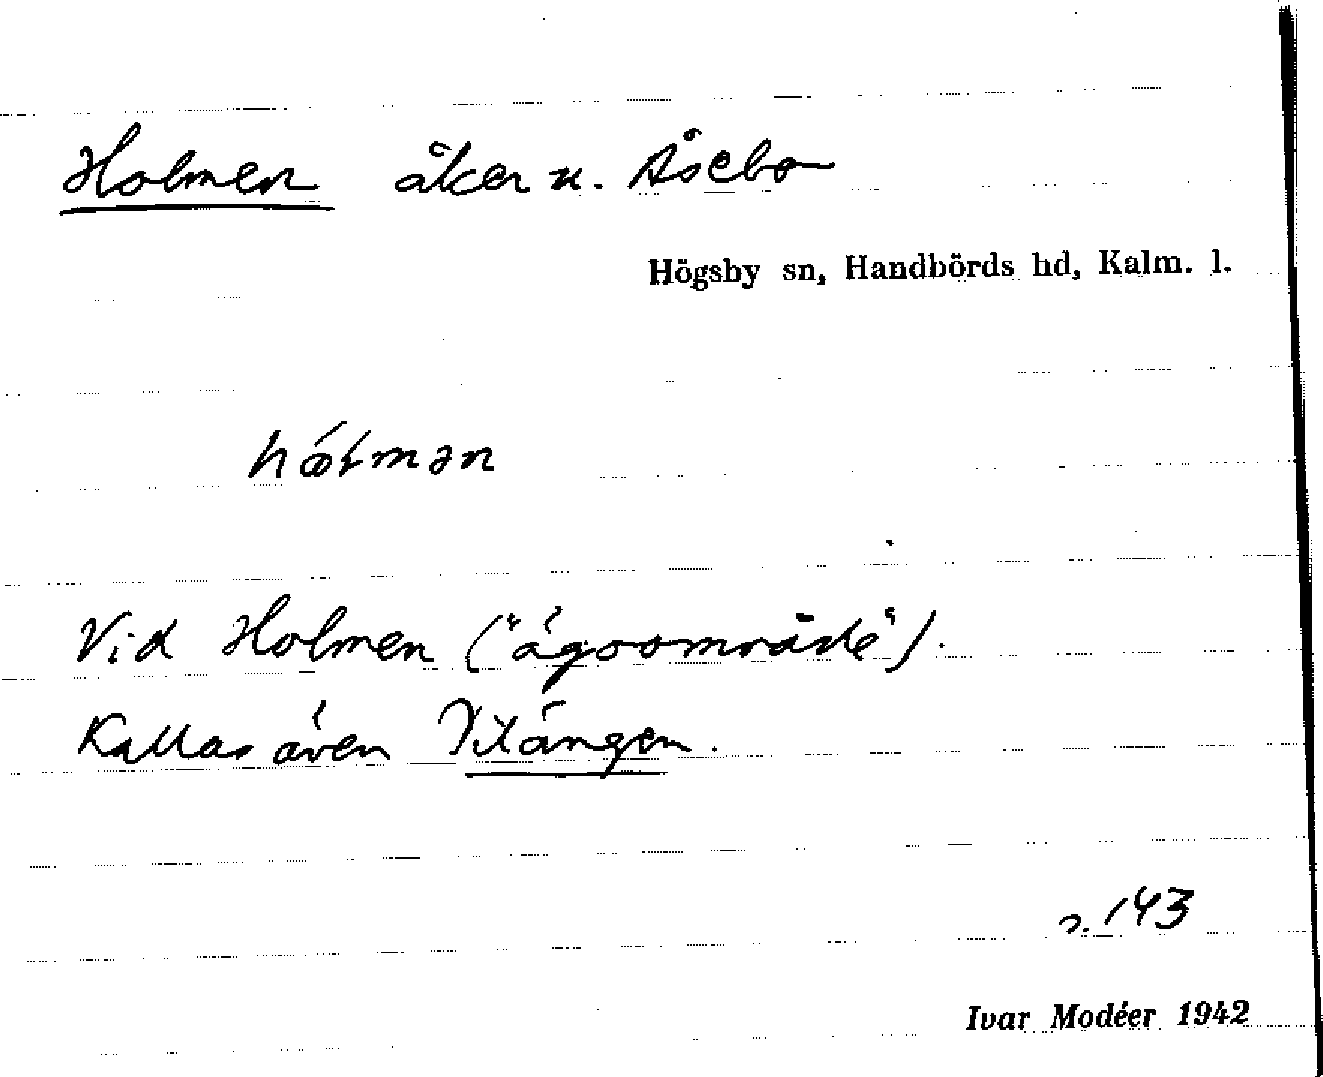 Holmen åker u. Åsebo
Högsby sn, Handbörds hd, Kalm. l.
Vid Holmen ("ägoområde").
Kallas även Vitängen.
s. 143
Ivar Modéer 1942